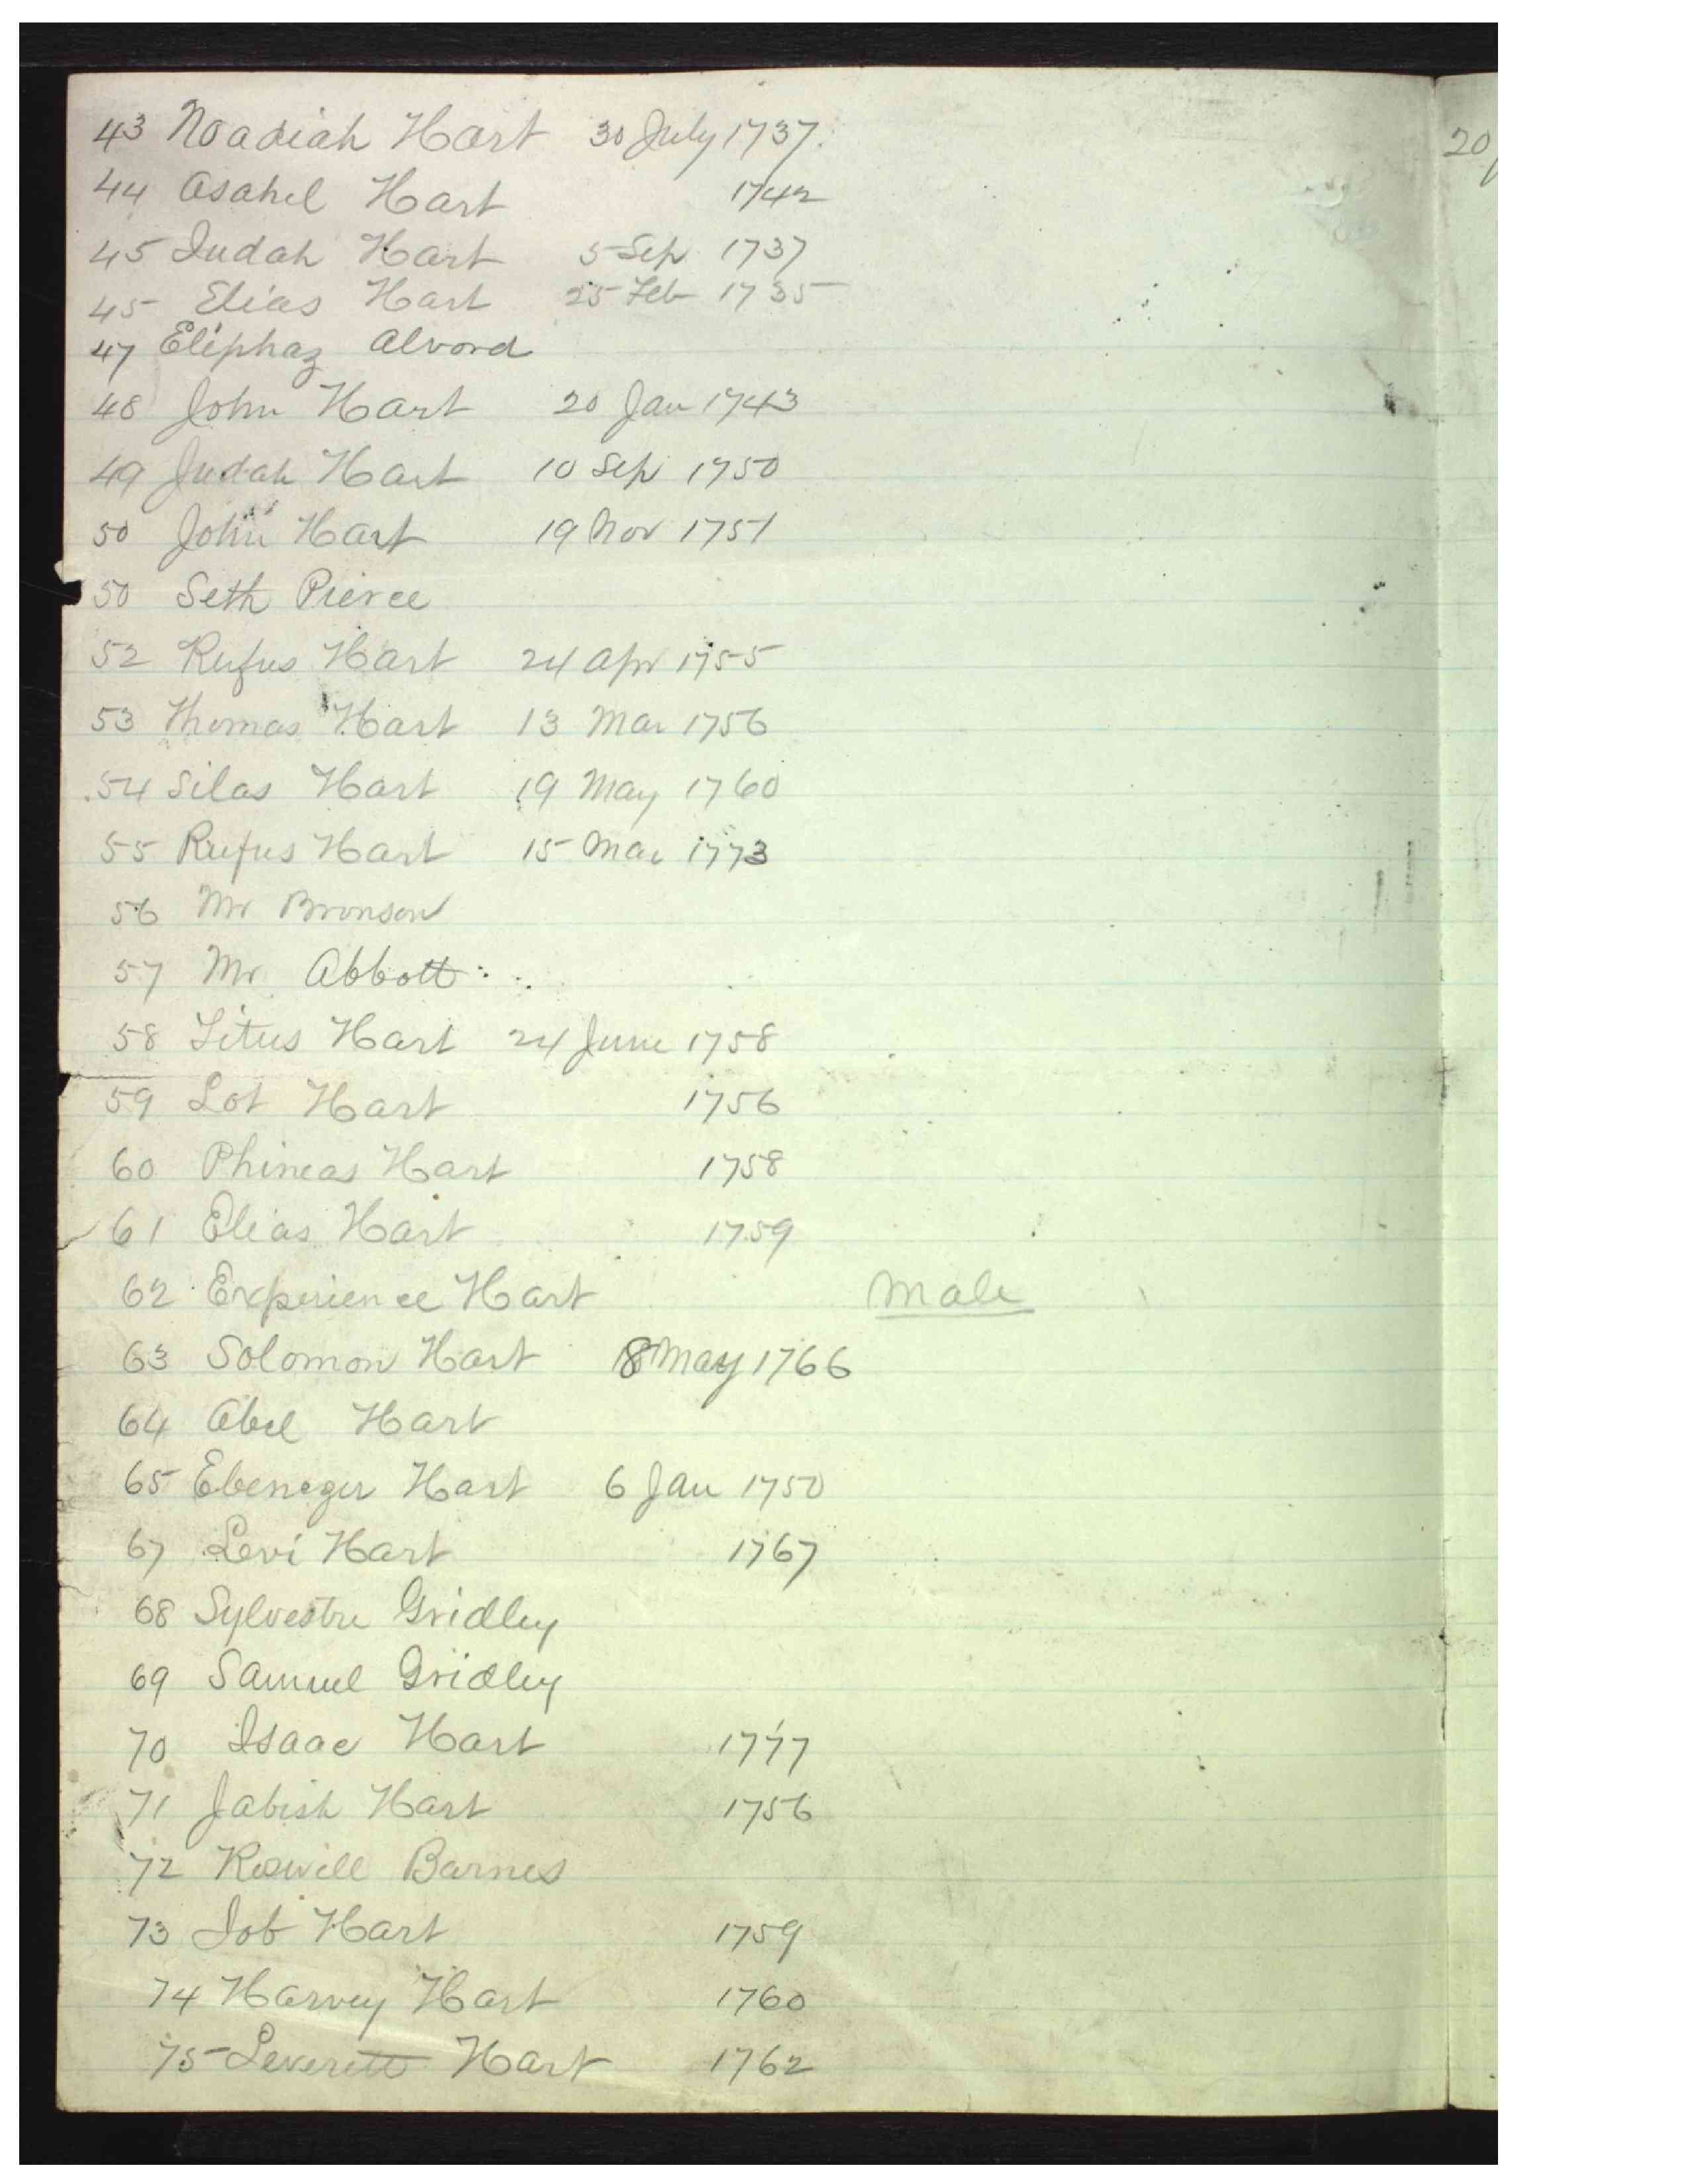 43 Noadiah Hart 30 July 1737.
44 Asahel Hart 1742
45 Judah Hart 5 Sep 1737
45 Elias Hart 25 Feb 1735
47 Eliphaz Alvord
48 John Hart 20 Jan 1743
49 Judah Hart 10 Sep 1750
50 John Hart 19 Nov 1751
50 Seth Pierce
52 Rufus Hart 24 Apr 1755
53 Thomas Hart 13 Mar 1756
54 Silas Hart 19 May 1760
55 Rufus Hart 15 Mar 1773
56 Mr Bronson
57 Mr. Abbott
58 Titus Hart 24 June 1758
59 Lot Hart 1756
60 Phineas Hart 1758
61 Elias Hart 1759
62 Experience Hart Male
63 Solomon Hart 8 May 1766
64 Abel Hart
65 Ebenezer Hart 6 Jan 1750
67 Levi Hart 1767
68 Sylvestre Gridley
69 Samuel Gridley
70 Isaac Hart 1777
71 Jabish Hart 1756
72 Barnes
73 Job Hart 1759
74 Harvey Hart 1760
75 Leverett Hart 1762
20